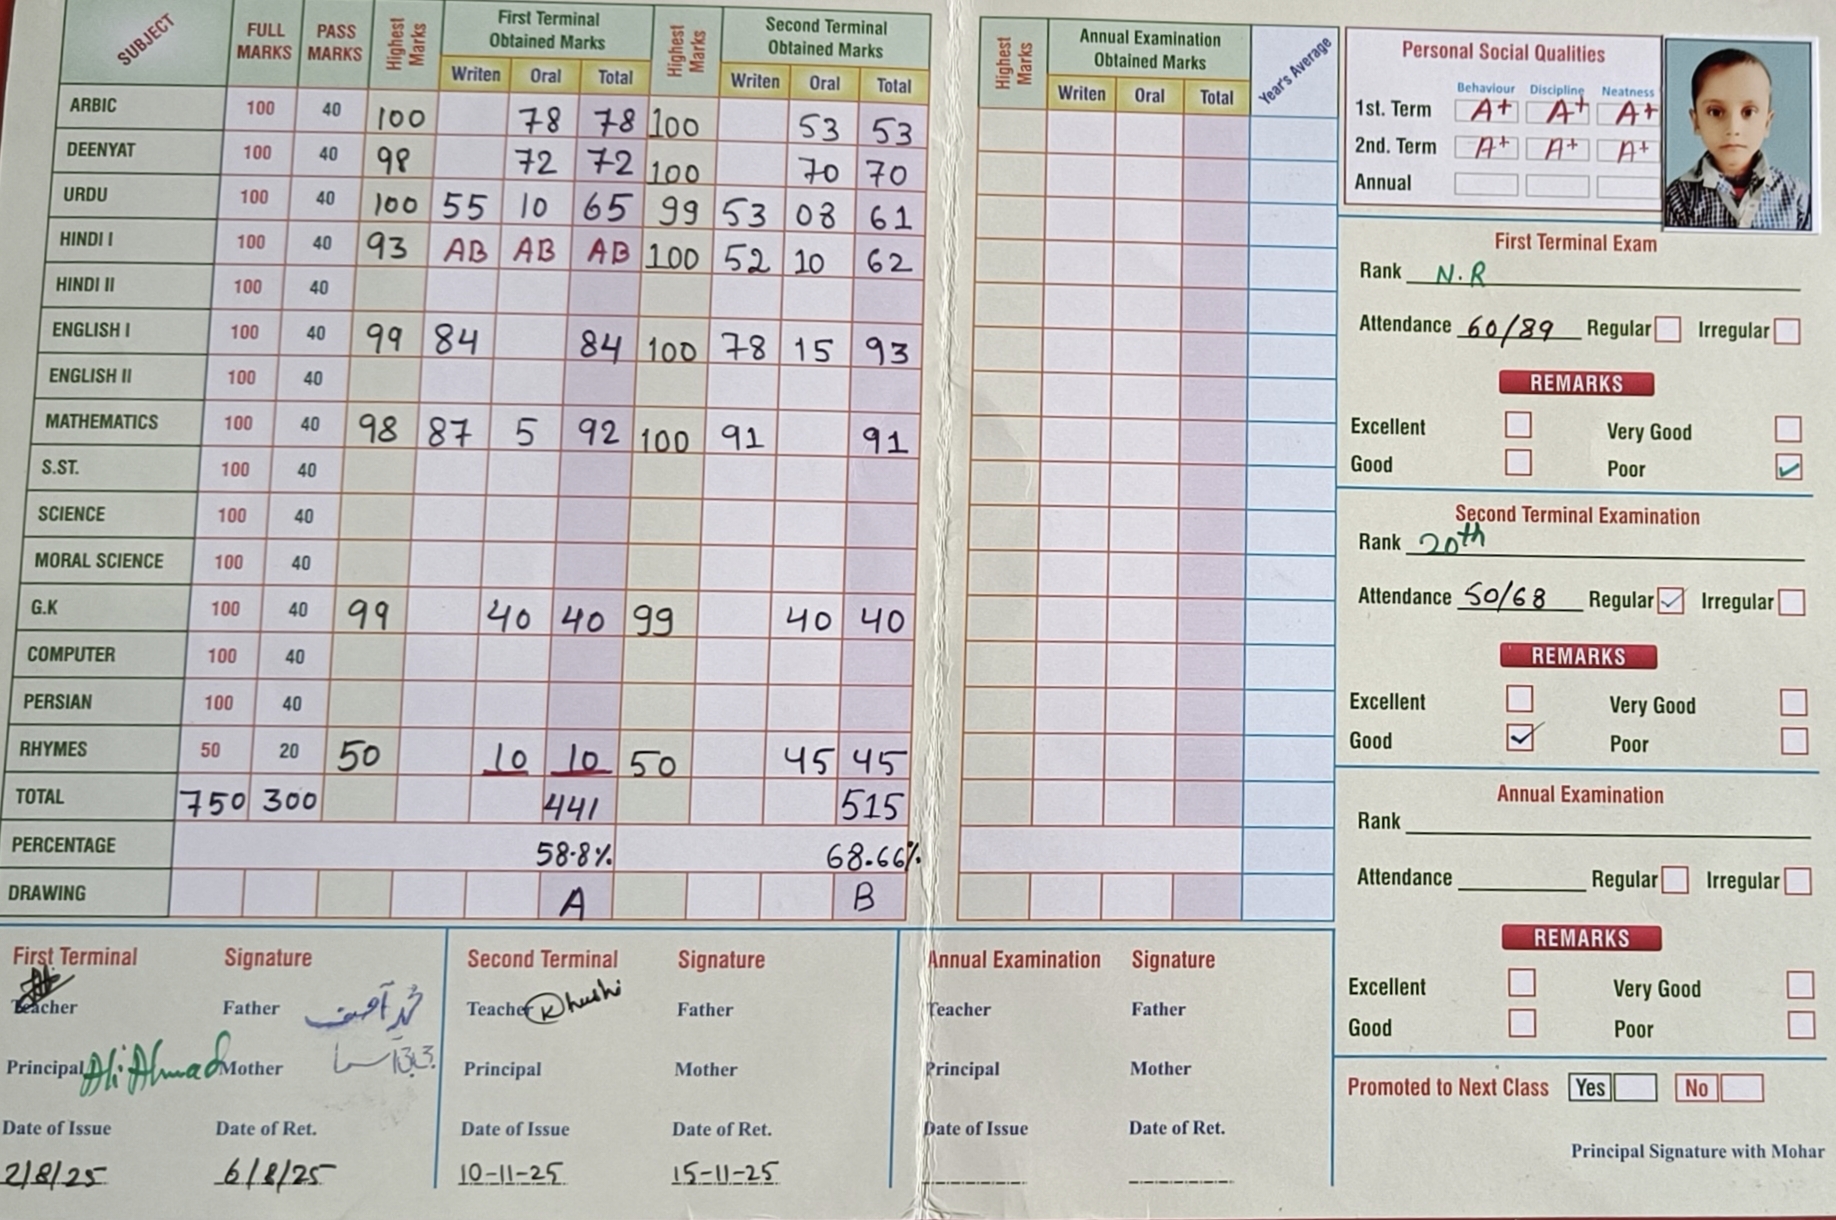 SUBJECT FULL MARKS PASS MARKS Highest Marks First Terminal Obtained Marks Highest Marks Second Terminal Obtained Marks
Writen Oral Total Writen Oral Total
ARBIC 100 40 100 78 78 100 53 53
DEENYAT 100 40 98 72 72 100 70 70
URDU 100 40 100 55 10 65 99 53 08 61
HINDI I 100 40 93 AB AB AB 100 52 10 62
HINDI II 100 40
ENGLISH I 100 40 99 84 84 100 78 15 93
ENGLISH II 100 40
MATHEMATICS 100 40 98 87 5 92 100 91 91
S.ST. 100 40
SCIENCE 100 40
MORAL SCIENCE 100 40
G.K 100 40 99 40 40 99 40 40
COMPUTER 100 40
PERSIAN 100 40
RHYMES 50 20 50 10 10 50 45 45
TOTAL 750 300 441 515
PERCENTAGE 58.8% 68.66%
DRAWING A B
Highest Marks Annual Examination Obtained Marks Year's Average
Writen Oral Total
Personal Social Qualities
Behaviour Discipline Neatness
1st. Term A+ A+ A+
2nd. Term A+ A+ A+
Annual
First Terminal Exam
Rank N.R
Attendance 60/89 Regular Irregular
REMARKS
Excellent Very Good
Good Poor
Second Terminal Examination
Rank 20th
Attendance 50/68 Regular Irregular
REMARKS
Excellent Very Good
Good Poor
Annual Examination
Rank
Attendance Regular Irregular
REMARKS
Excellent Very Good
Good Poor
Promoted to Next Class Yes No
Principal Signature with Mohar
First Terminal Signature
Teacher Father محمد آصف
Principal Ali Ahmad Mother
Date of Issue Date of Ret.
2/8/25 6/8/25
Second Terminal Signature
Teacher Khushi Father
Principal Mother
Date of Issue Date of Ret.
10-11-25 15-11-25
Annual Examination Signature
Teacher Father
Principal Mother
Date of Issue Date of Ret.